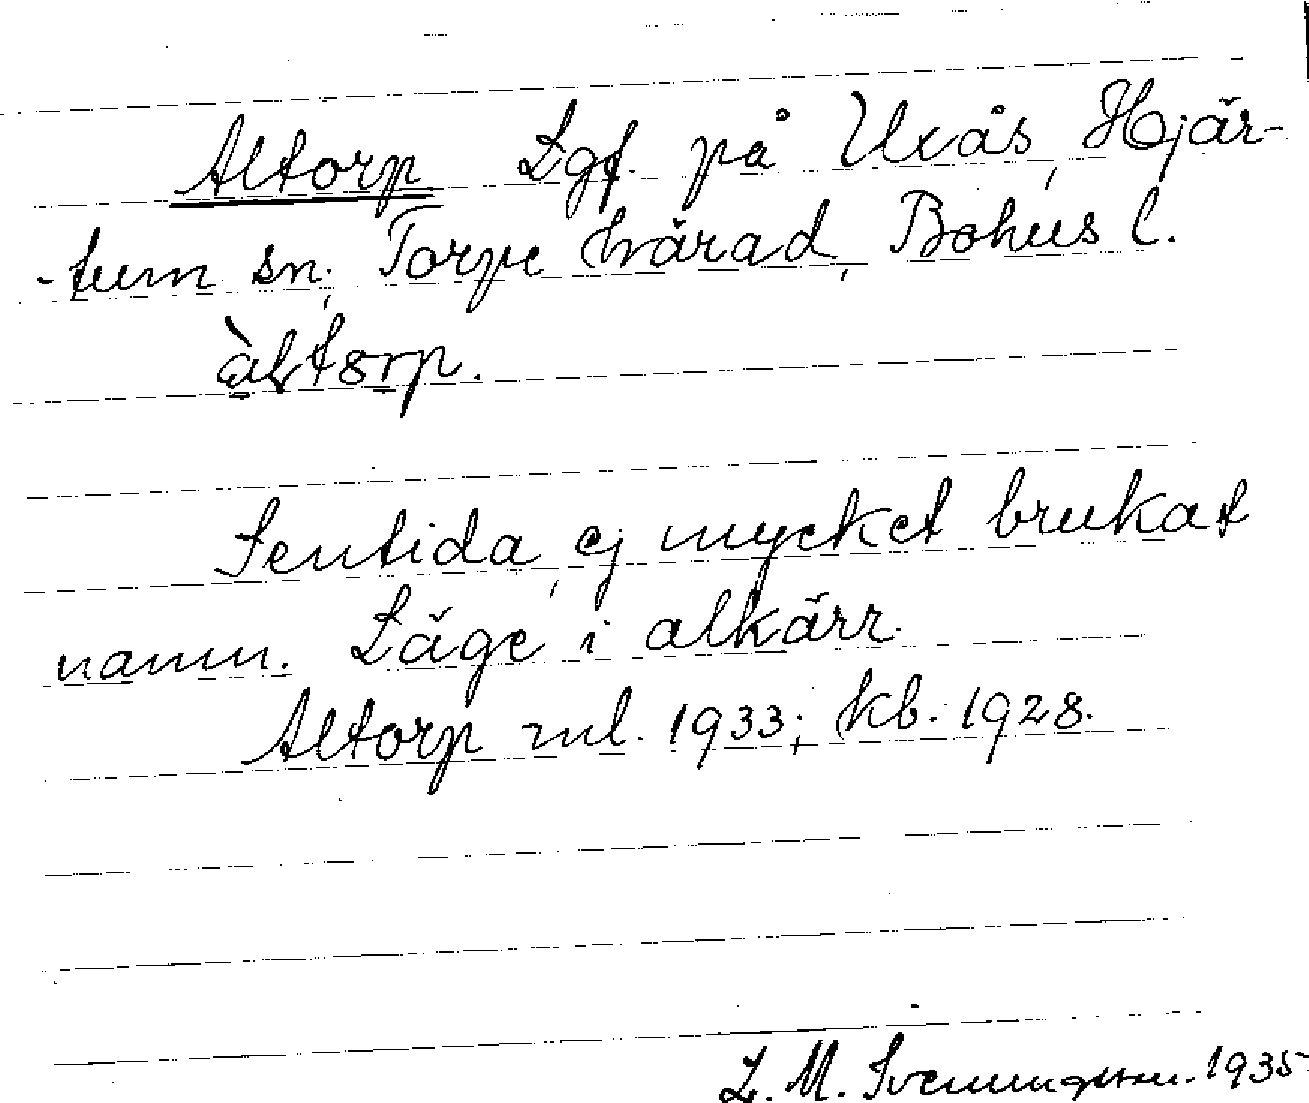 Altorp Lgf. på Uxås, Hjär-
-tum sn., Torpe härad, Bohus l.
àltorp.
Sentida, ej mycket brukat
namn. Läge i alkärr.
Altorp ml. 1933; kb. 1928.
L. M. Svenungsson. 1935